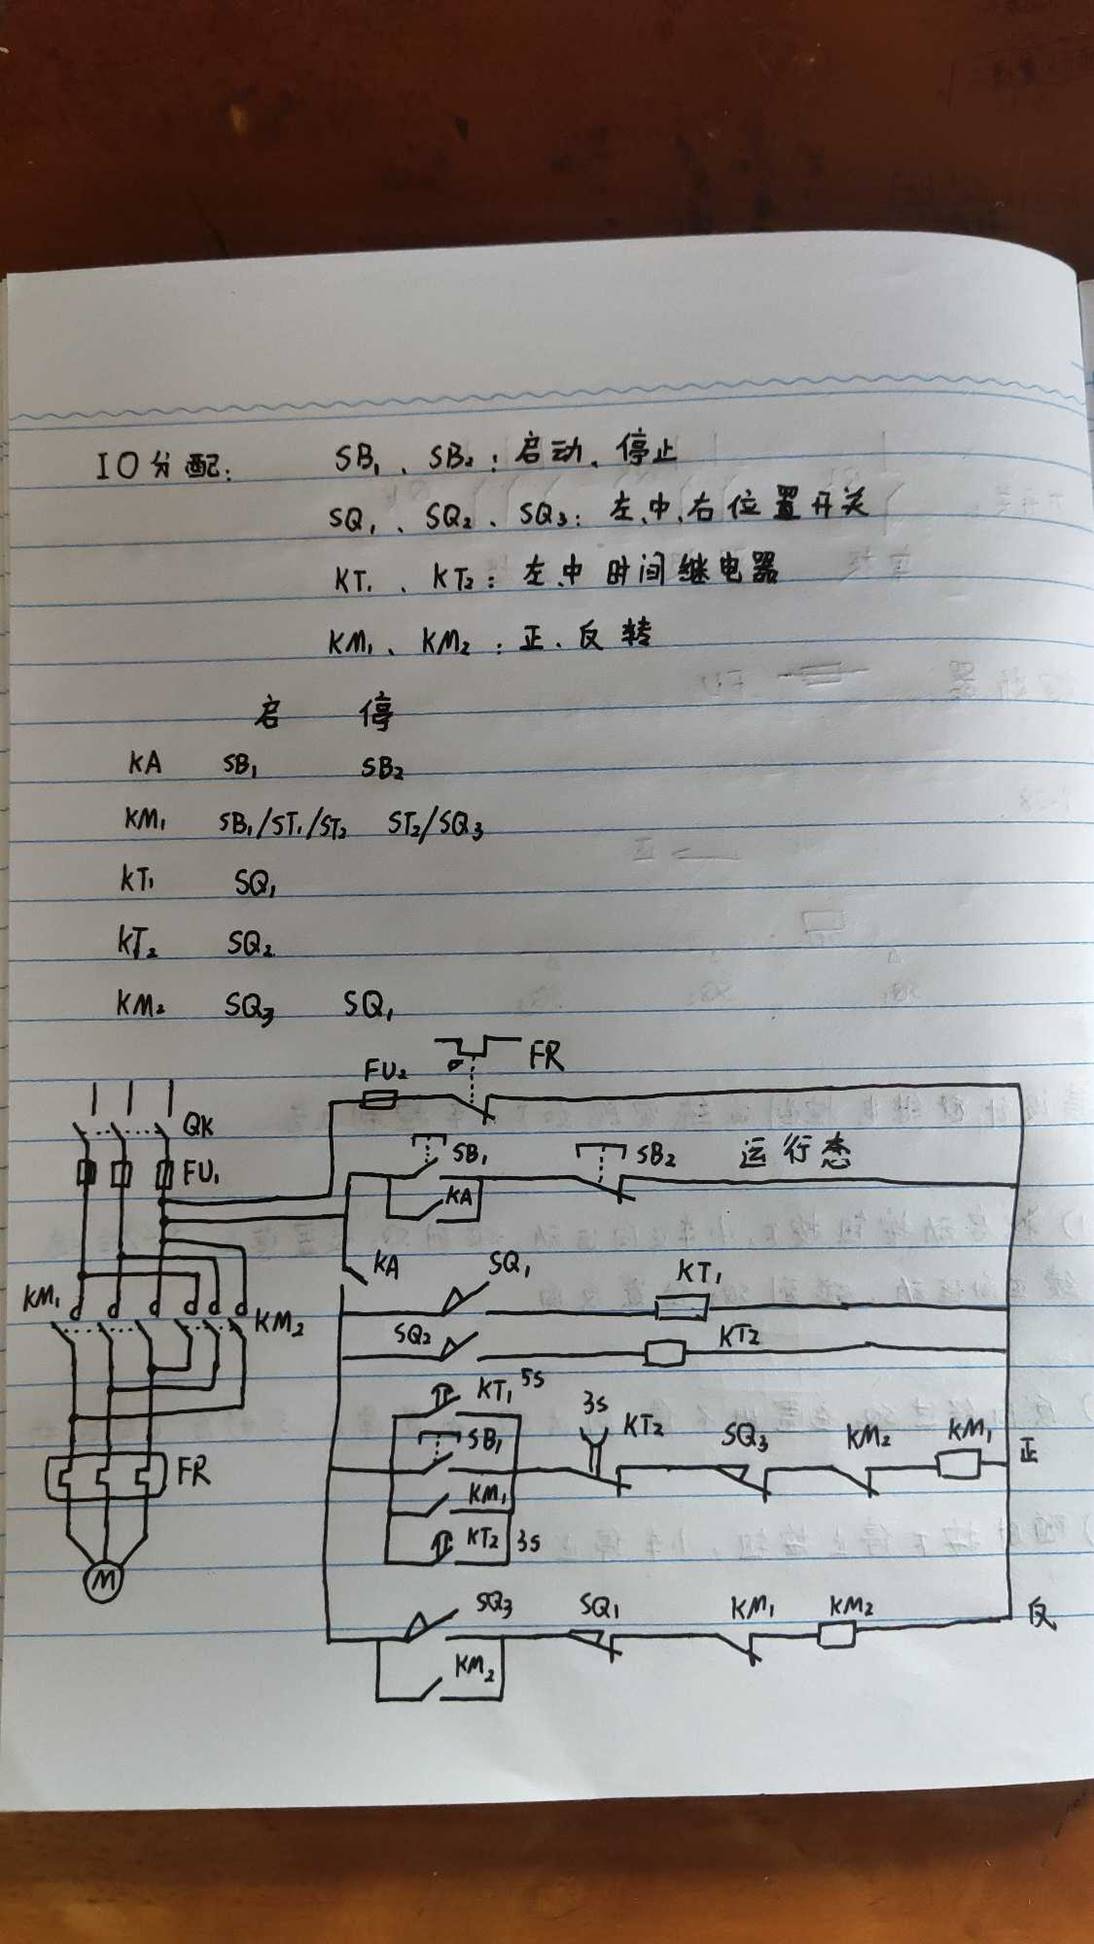 IO分配: SB₁、SB₂: 启动、停止
SQ₁、SQ₂、SQ₃: 左、中、右位置开关
KT₁、KT₂: 左、中时间继电器
KM₁、KM₂: 正、反转
启 停
KA SB₁ SB₂
KM₁ SB₁/ST₁/ST₂ ST₂/SQ₃
KT₁ SQ₁
KT₂ SQ₂
KM₂ SQ₃ SQ₁
FU₂ FR
QK
FU₁
SB₁ SB₂ 运行态
KA
KA SQ₁ KT₁
KM₁ KM₂
SQ₂ KT2
KT₁ 5s
SB₁ 3s KT2 SQ₃ KM₂ KM₁ 正
FR
KM₁
KT2 3s
M
SQ₃ SQ₁ KM₁ KM₂ 反
KM₂